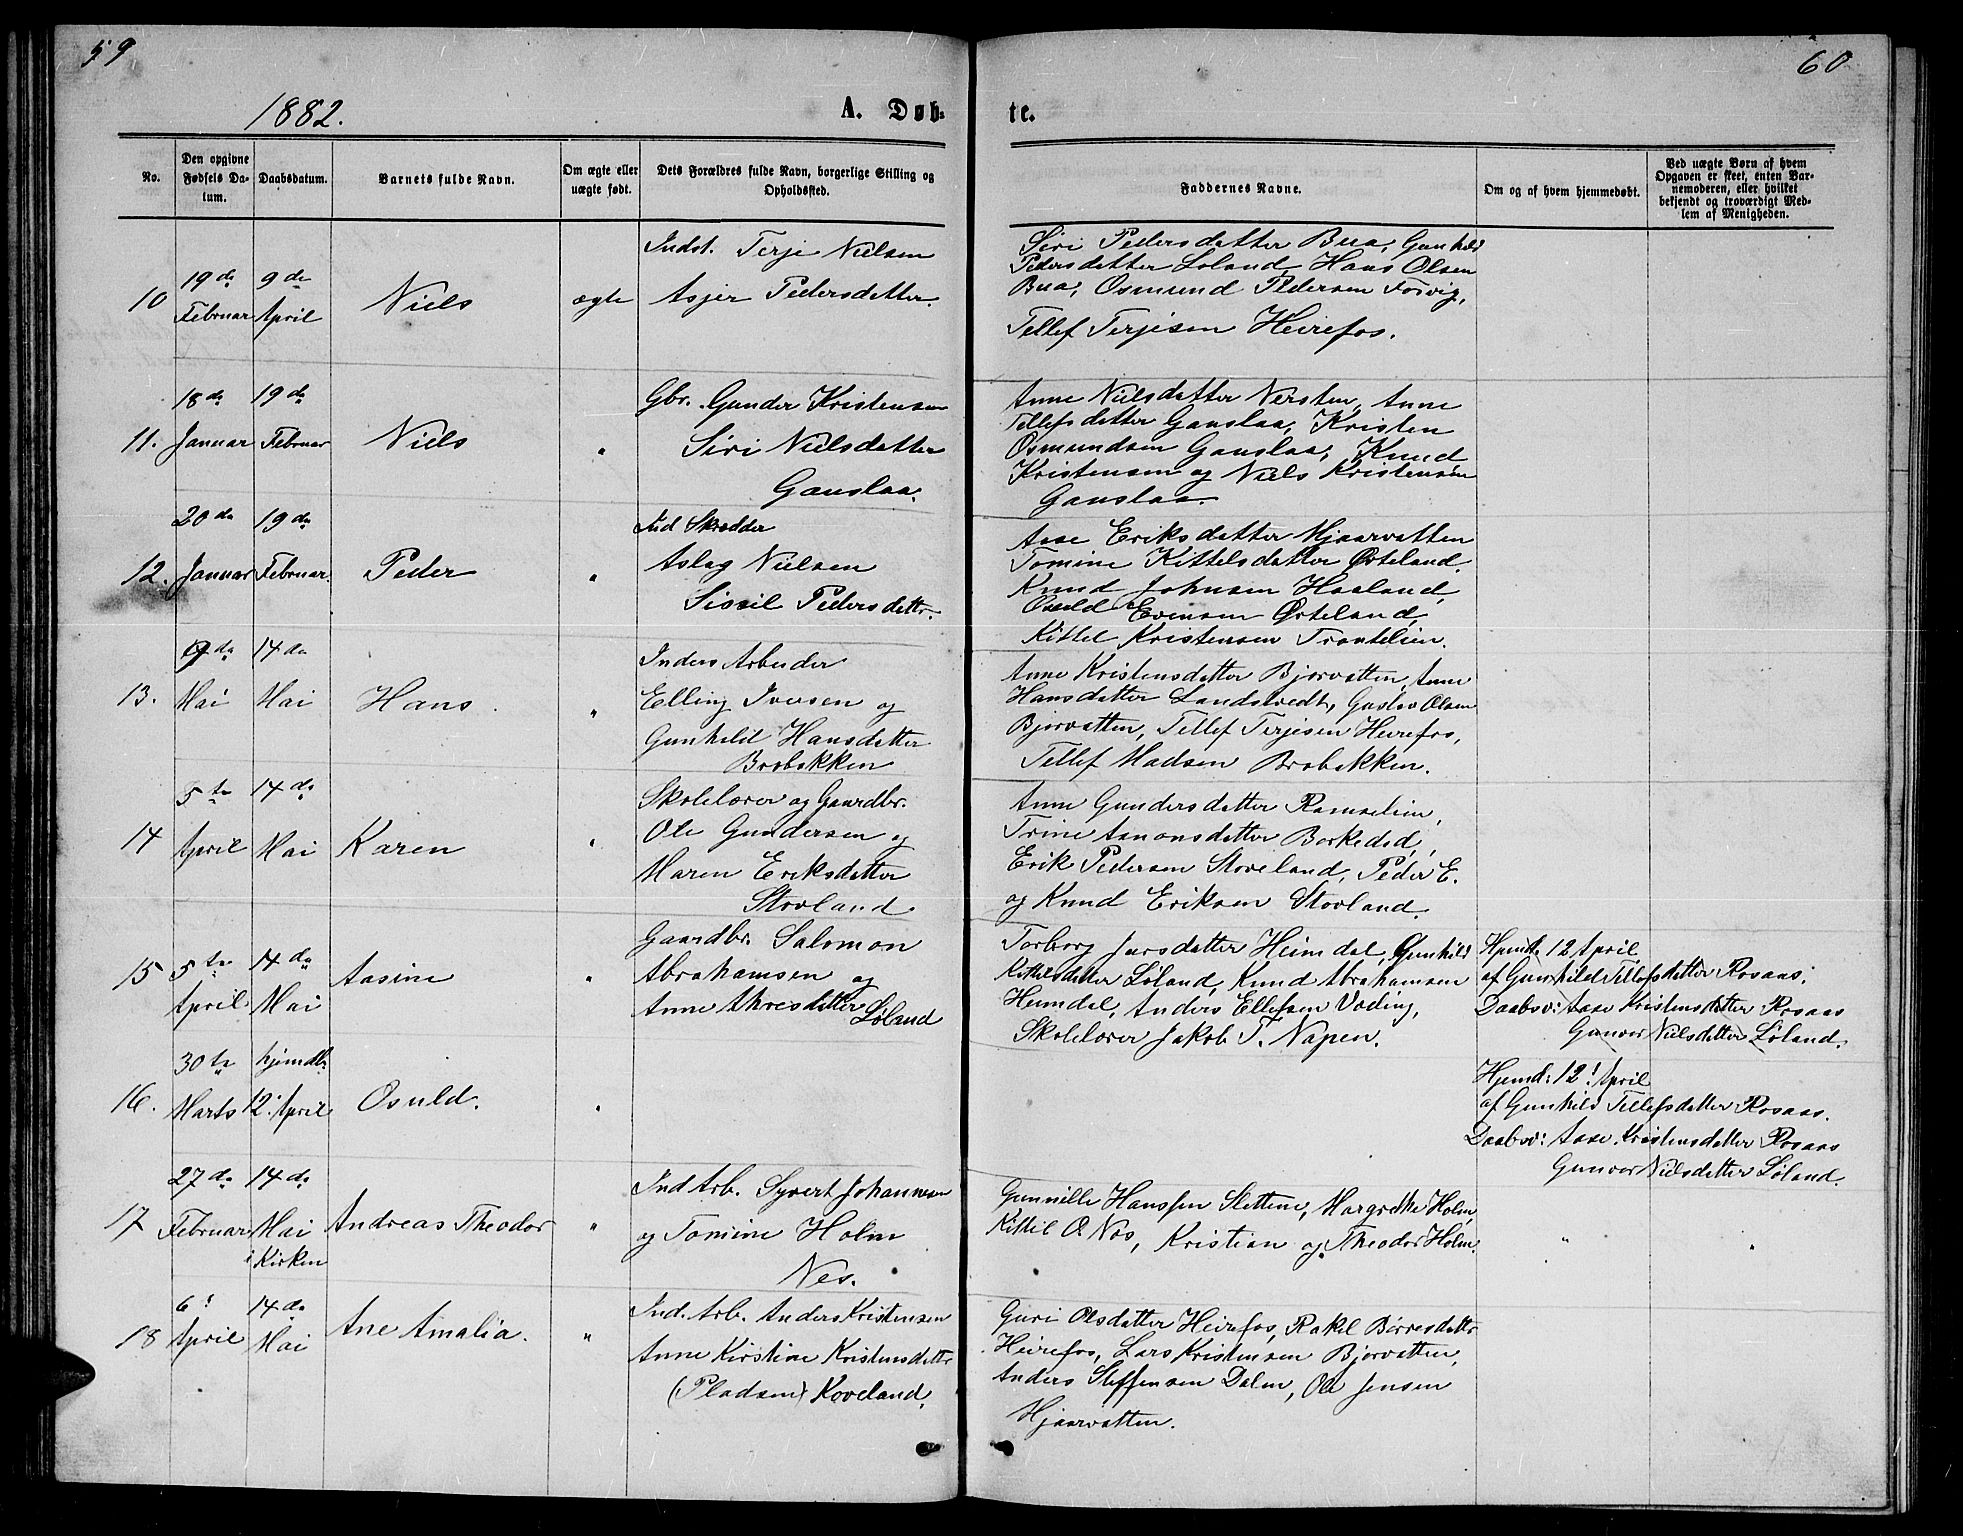 59
60
1882.
A. Døb-
te.
No.
Den opgivne Fødsels Da-
tum.
Daabsdatum.
Barnets fulde Navn.
Om ægte eller
uægte født.
Dets Forældres fulde Navn, borgerlige Stilling og
Opholdssted.
Faddernes Navne.
Om og af hvem hjemmedøbt.
Ved uægte Børn af hvem
Opgaven er skeet, enten Bar-
nemoderen, eller hvilket
bekjendt og troværdigt Med-
lem af Menigheden.
10
19de
Februar
9de
April
Niels
ægte
Indst. Terje Nielsen
Asjer Pedersdatter.
Siri Pedersdatter Bua, Gunhild
Pedersdatter Loland, Hans Olsen
Bua, Osmund Pedersen Forvig,
Tellef Terjesen Heirefos.
11.
18de
Januar
19de
Februar
Niels
"
Gbr. Gunder Kristensen
Siri Nielsdatter
Gauslaa.
Anne Nielsdatter Nersten, Anne
Tellefsdatter Gauslaa, Kristen
Osmundsen Gauslaa, Knud
Kristensen og Niels Kristensen
Gauslaa.
12.
20de
Januar
19de
Februar.
Peder
"
Ind Skrædder
Aslag Nielsen
Sissil Pedersdattr.
Aase Eriksdatter Hjaarvatten
Tomine Kittelsdatter Østeland.
Knud Johnsen Haaland,
Osuld Evensen Østeland,
Kittel Kristensen Trontelien.
13.
9de
Mai
14de
Mai
Hans
"
Inders Arbeider
Elling Iversen og
Gunhild Hansdatter
Brobakken
Anne Kristensdatter Bjorvatten, Anne
Hansdatter Landstvedt, Gustav Olsen
Bjorvatten, Tellef Terjesen Heirefos,
Tellef Madsen Brobakken.
14
5te
April
14de
Mai
Karen
"
Skolelærer og Gaardbr.
Ole Gundersen og
Maren Eriksdatter
Stovland.
Anne Gundersdatter Ramselien,
Trine Aanonsdatter Borkedal,
Erik Pedersen Stoveland, Peder E.
og Knud Eriksen Stovland.
15
5te
April
14de
Mai
Aasine
"
Gaardbr. Salomon
Abrahamsen og
Anne Akresdatter Løland
Torborg Jursdatter Heimdal, Gunhild
Kittelsdatter Løland, Knud Abrahamsen
Heimdal, Anders Ellefsen Vading,
Skolelærer Jakob T. Napen.
Hjemd. 12 April
af Gunhild Tellefsdatter Rosaas.
Daabsv: Aase Kristensdatter Rosaas
Gunvor Nielsdatter Løland.
16.
30te
Marts
hjemdbt.
12t. April
Osuld.
"
Hjemd: 12t April
af Gunhild Tellefsdatter Rosaas.
Daabsv: Aase Kristensdatter Rosaas
Gunvor Nielsdatter Løland.
17
27de
Februar
14de
Mai
i Kirken
Andreas Theodor
"
Ind Arb. Syvert Johannesen
og Tomine Holm
Nes.
Gunnille Hanssen Slettene, Margrethe Holm,
Kittil O. Nes, Kristian og Theodor Holm.
"
"
18
6t
April
14de
Mai
Ane Amalia.
"
Ind. Arb. Anders Kristensen
Anne Kirstine Kristensdattr
(Pladsen) Koveland,
Guri Olsdatter Heirefos, Rakel Børresdattr
Heirefos, Lars Kristensen Bjorvatten,
Anders Steffensen Dalen, Ole Jensen
Hjaarvatten.